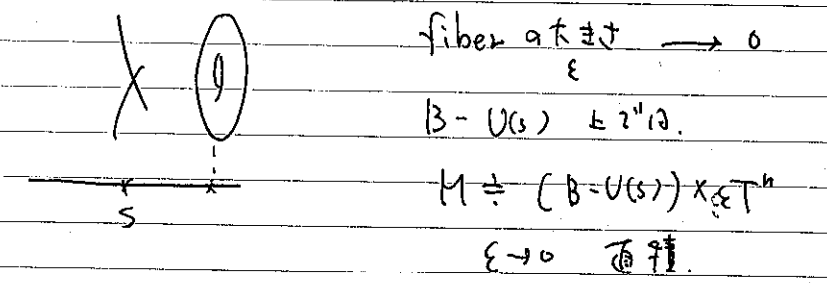 fiber の大きさ → 0
ε
B - U(s) 上では.
M ≒ (B - U(s)) × εTⁿ
S
ε→0 直積.